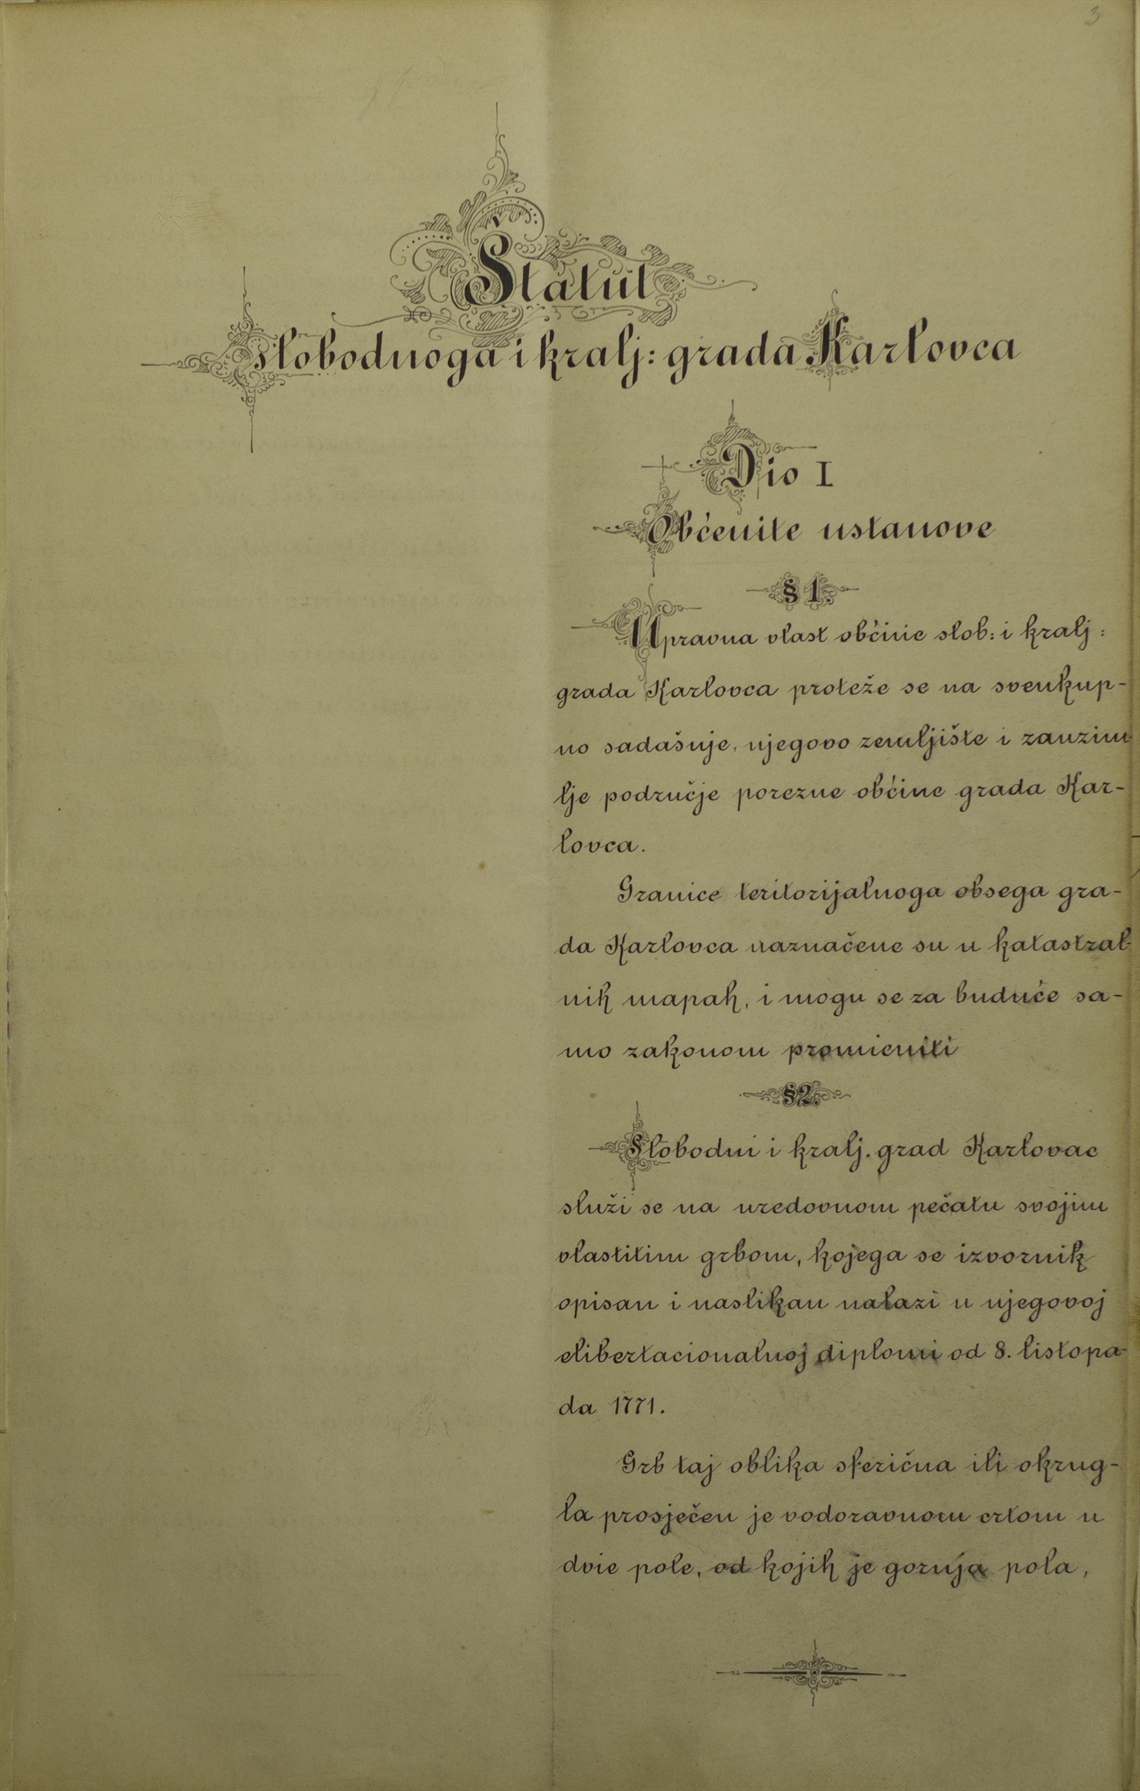 3
Statut
Slobodnoga i kralj: grada Karlovca
Dio I
Obćenite ustanove
§ 1.
Upravna vlast obćine slob: i kralj:
grada Karlovca proteže se na sveukup-
no sadašnje, njegovo zemljište i zauzim
lje područje porezne obćine grada Kar-
lovca.
Granice teritorijalnoga obsega gra-
da Karlovca naznačene su u katastral-
nih mapah, i mogu se za buduće sa-
mo zakonom promieniti
§ 2.
Slobodni i kralj. grad Karlovac
služi se na uredovnom pečatu svojim
vlastitim grbom, kojega se izvornik
opisan i naslikan nalazi u njegovoj
elibertacionalnoj diplomi od 8. listopa-
da 1771.
Grb taj oblika sferična ili okrug-
la prosječen je vodoravnom crtom u
dvie pole, od kojih je gornja pola,